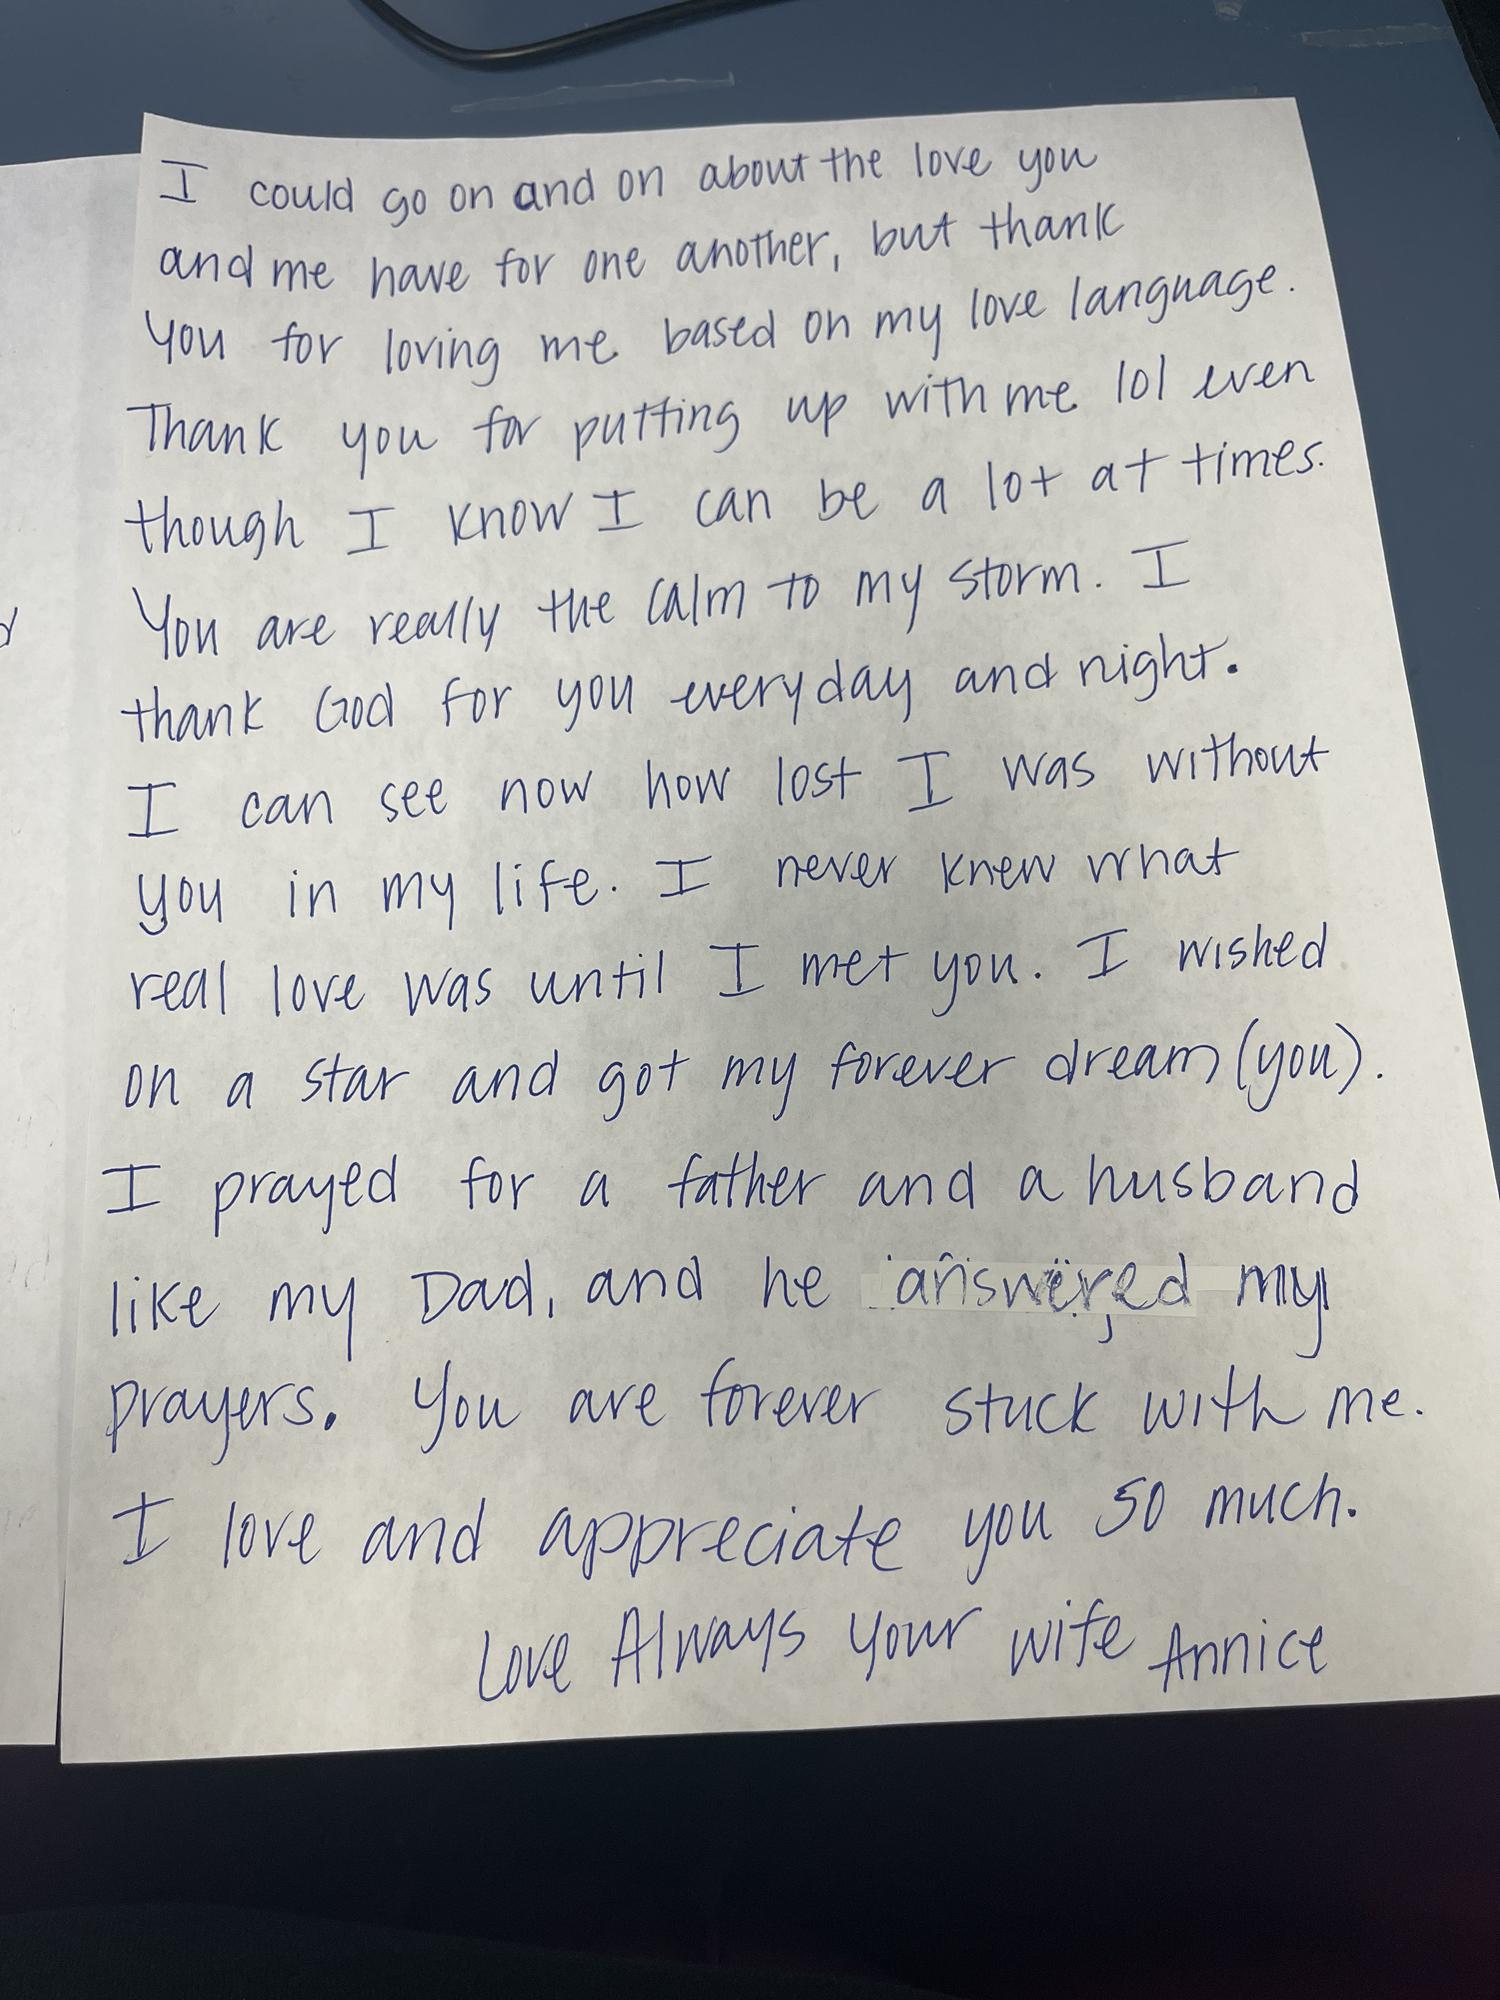 I could go on and on about the love you
and me have for one another, but thank
you for loving me based on my love language.
Thank you for putting up with me lol even
though I know I can be a lot at times.
You are really the calm to my storm. I
thank God for you everyday and night.
I can see now how lost I was without
you in my life. I never knew what
real love was until I met you. I wished
on a star and got my forever dream (you).
I prayed for a father and a husband
like my Dad, and he answered my
prayers. You are forever stuck with me.
I love and appreciate you so much.
Love Always Your wife Annice